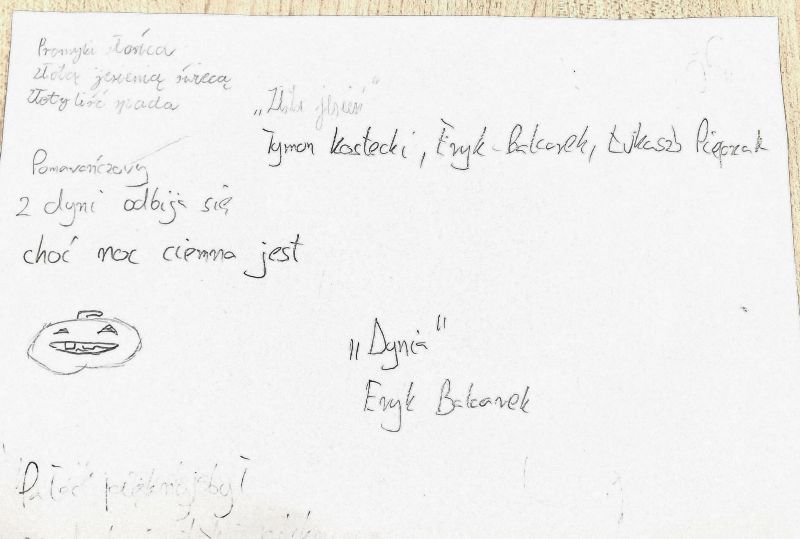 Promyki słońca
złotą jesienią świecą
złoty liść spada
„Złota jesień”
Tymon Kostecki, Eryk Balcarek, Łukasz Pięczak
Pomarańczowy
z dyni odbija się
choć noc ciemna jest
„Dynia”
Eryk Balcarek
Pałac piękny był